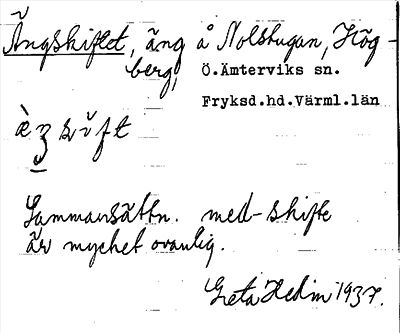 Ängskiftet, äng å Nolstugan, Hög-
berg,
Ö.Ämterviks sn.
Fryksd.hd.Värml.län
Sammansättn. med -skifte
är mycket ovanlig.
Greta Hedin 1937.